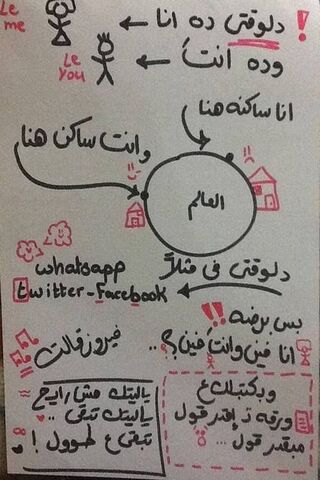 ! دلوقتى ده انا
Le me
وده انتَ
Le you
انا ساكنه هنا
وانت ساكن هنا
العالم
دلوقتى فى مثلاً
whatsapp
twitter-Facebook
بس برضه !!
انا فين وانت فين؟..
فيروز قالت
يا ليتك مش رايح
يا ليتك تبقى ..
تبقى ع طوول!
وبكتبلك ع
ورقه
قول
مبقدر قول...